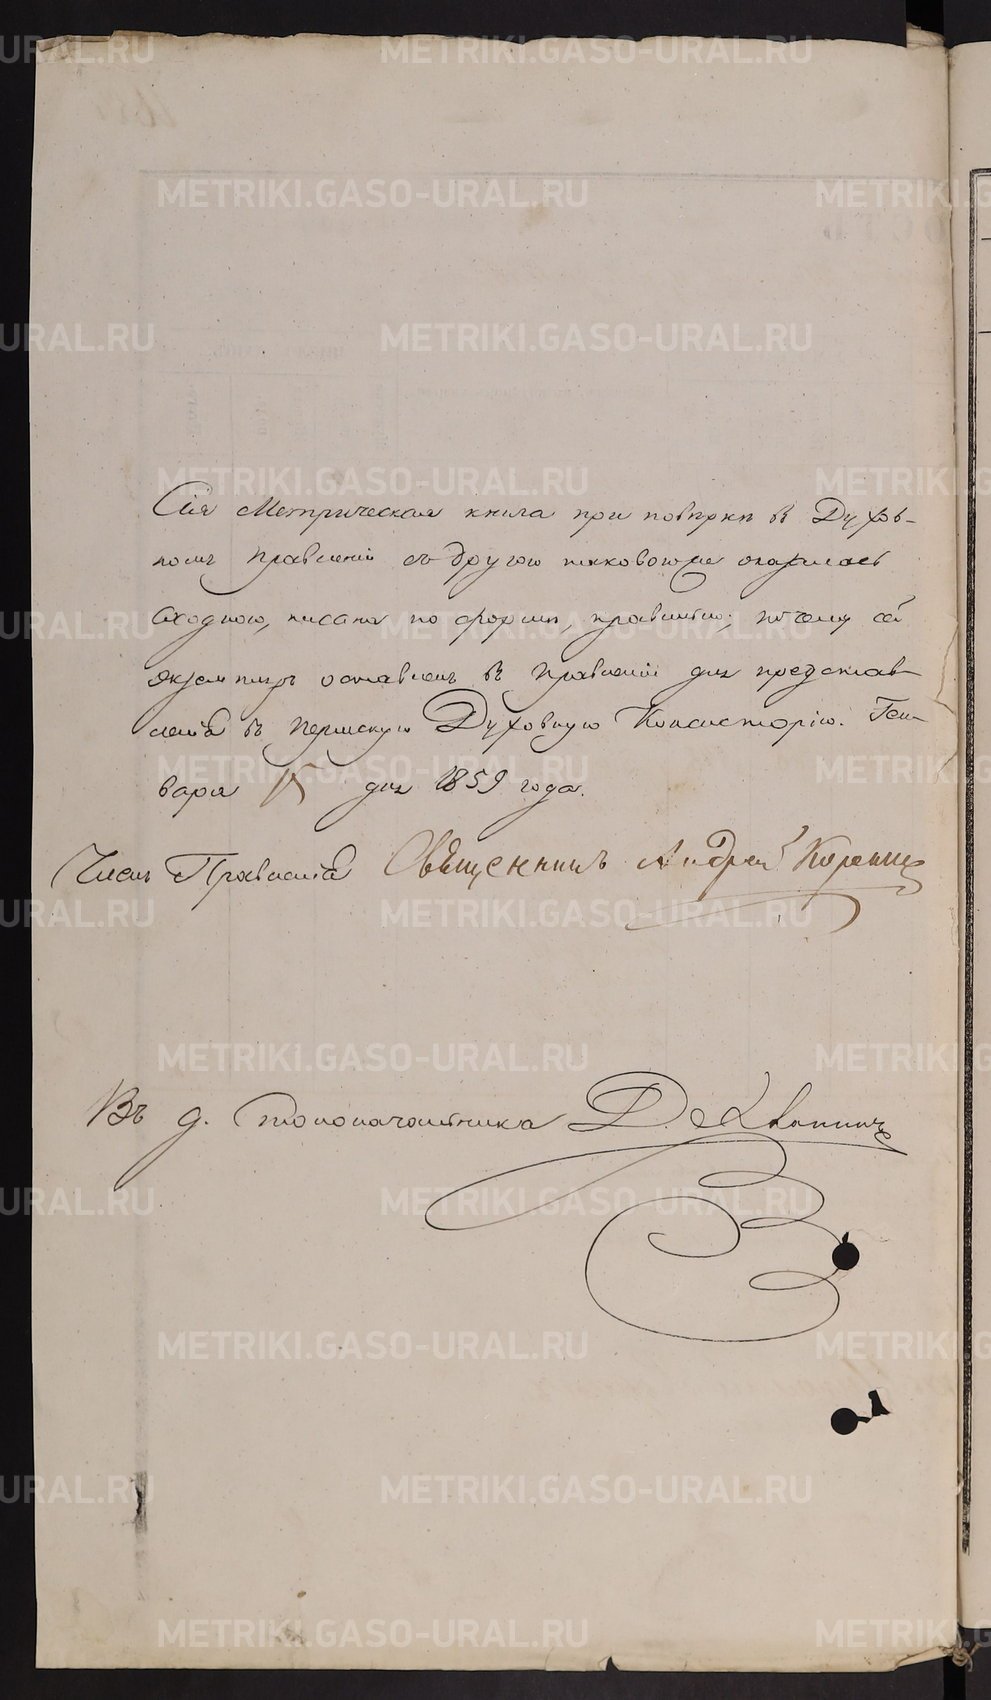 Сія Метрическая книга при повѣркѣ въ Духов-
номъ Правленіи съ другою таковоюже оказалась
сходною, писана по формѣ, правильно; почему сей
экземпляръ оставленъ въ Правленіи для представ-
ленія въ Пермскую Духовную Консисторію. Ген-
варя 15 дня 1859 года.
Членъ Правленія Священникъ Андрей
Въ д. Столоначальника
METRIKI.GASO-URAL.RU